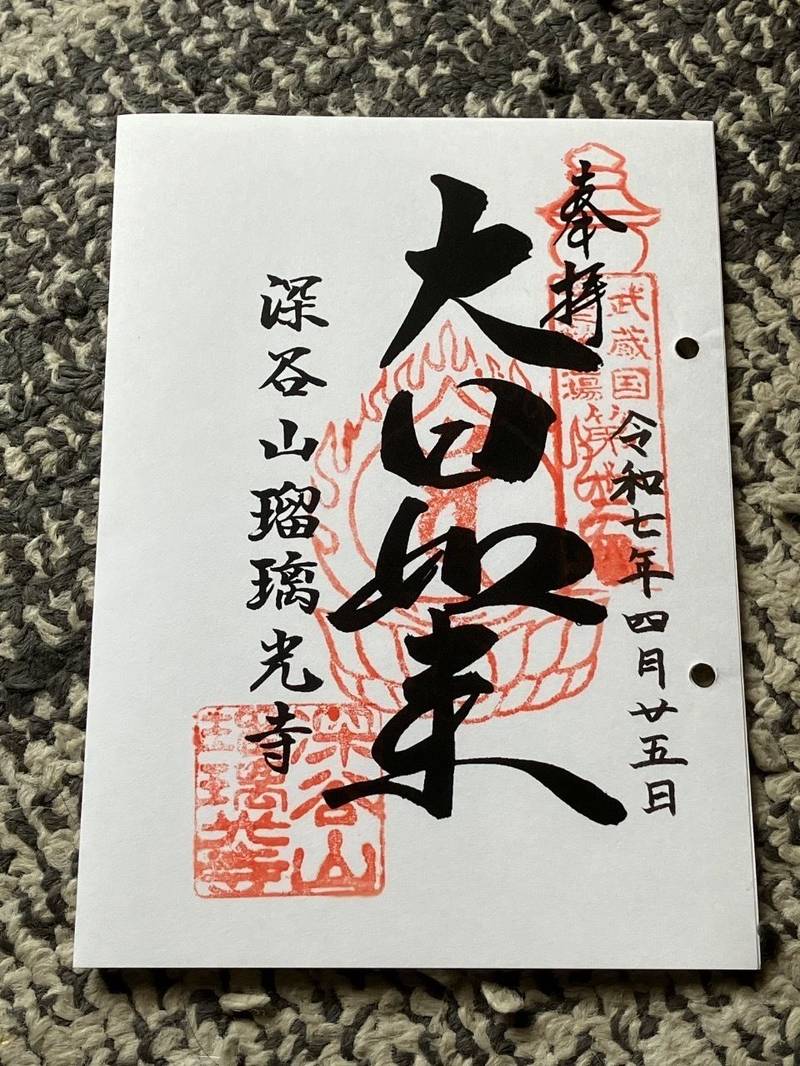 奉拝
令和七年四月廿五日
武蔵国
大日如来
深谷山瑠璃光寺
深谷山
瑠璃光寺